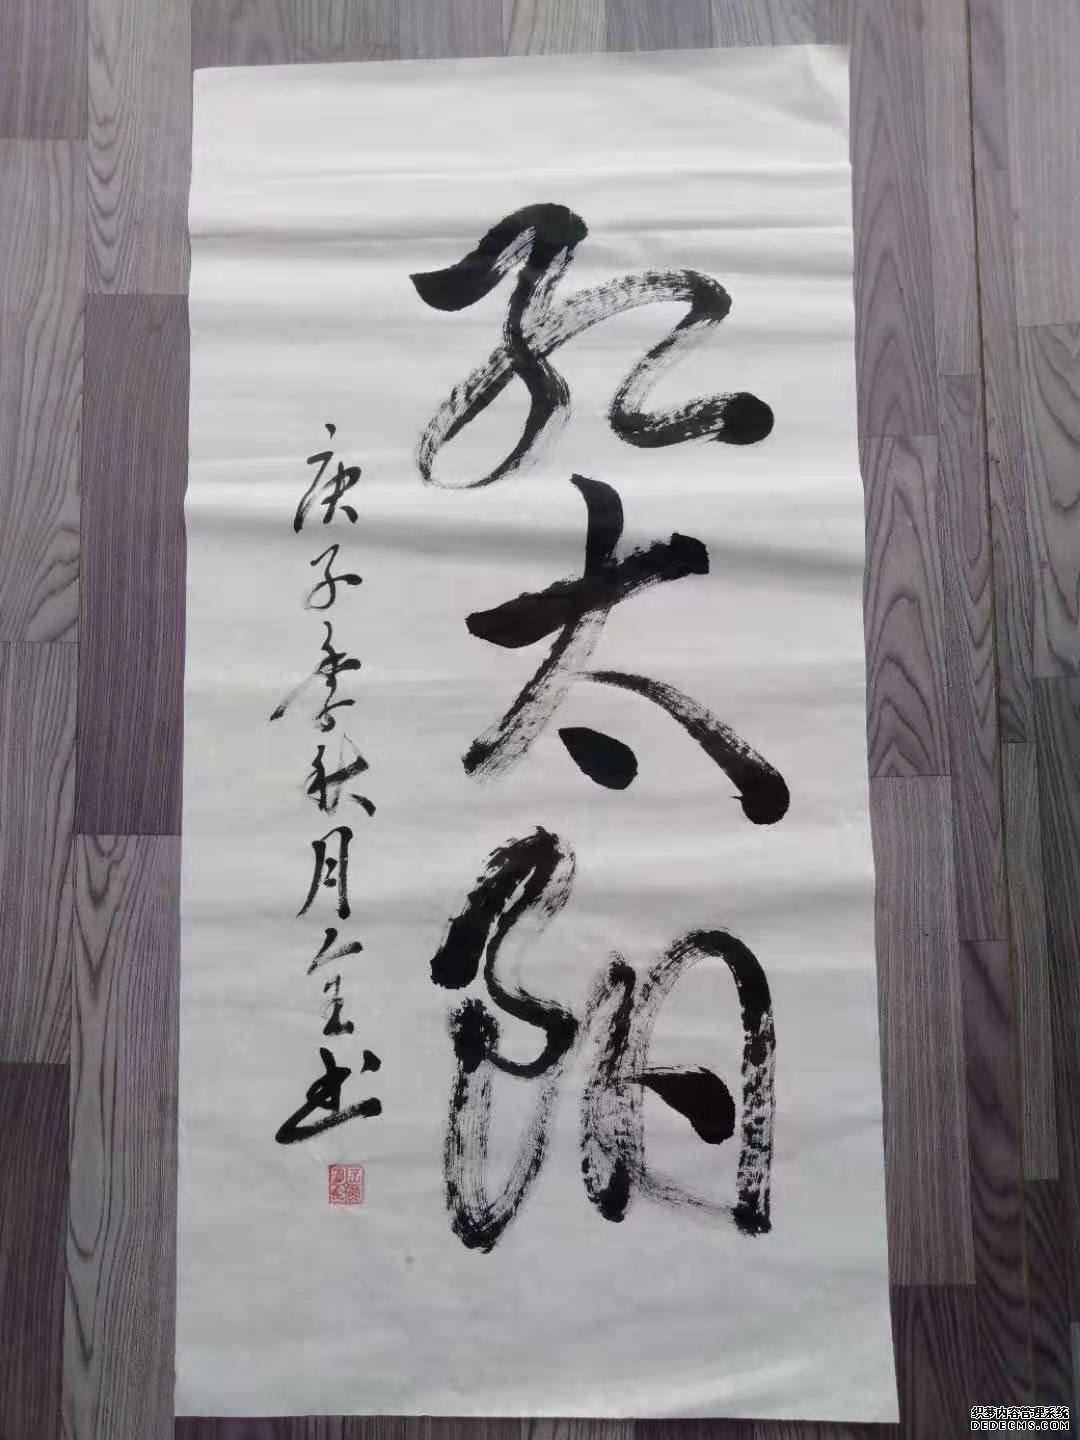 红太阳
庚子季秋月
书
织梦内容管理系统
DEDECMS.COM